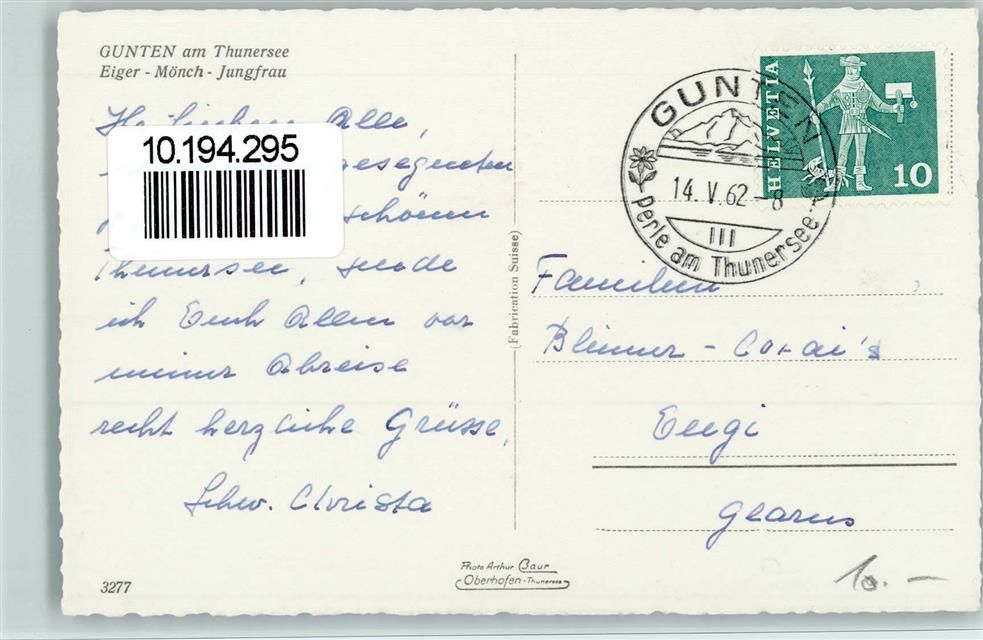 GUNTEN am Thunersee
Eiger - Mönch - Jungfrau
Ihr lieben Alle,
10.194.295
gesegneten
schönen
Thunersee, sende
ich Euch Allen vor
meiner Abreise
recht herzliche Grüsse,
Schw. Christa
3277
(Fabrication Suisse)
Photo Arthur Baur
Oberhofen - Thunersee
HELVETIA
10
GUNTEN
14. V. 62 - 8
III
Perle am Thunersee
Familien
Blumer - Corai's
Engi
Glarus
10.-